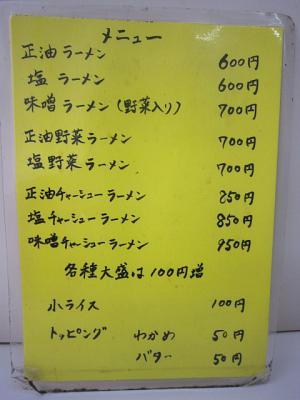 メニュー
正油ラーメン 600円
塩ラーメン 600円
味噌ラーメン(野菜入り) 700円
正油野菜ラーメン 700円
塩野菜ラーメン 700円
正油チャーシューラーメン 850円
塩チャーシューラーメン 850円
味噌チャーシューラーメン 950円
各種大盛は100円増
小ライス 100円
トッピング わかめ 50円
バター 50円